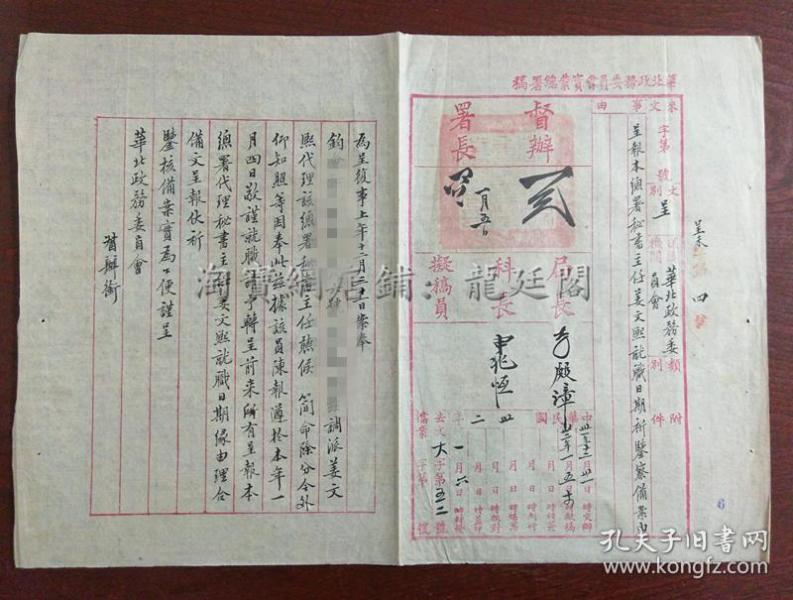 華北政務委員會實業總署稿
來文
事由
字第 號
文別
呈
送達機關
華北政務委員會
類別
附件
呈報本總署秘書主任姜文熙就職日期祈鑒察備案由
呈末
四
督辦
署長
一月五日
局長
科長
擬稿員
申兆恆
中華民國
卅二年
一月六日
去文大字第五二號
檔案 字第 號
6
為呈復事上年十二月三十日案奉
鈞
調派姜文
熙代理該總署秘書主任聽候 簡命除分令外
仰知照等因奉此茲據該員陳報遵於本年一
月四日敬謹就職請予轉呈前來所有呈報本
總署代理秘書主任姜文熙就職日期緣由理合
備文呈報伏祈
鑒核備案實為公便謹呈
華北政務委員會
督辦銜
海寶網店鋪：龍廷閣
孔夫子旧书网